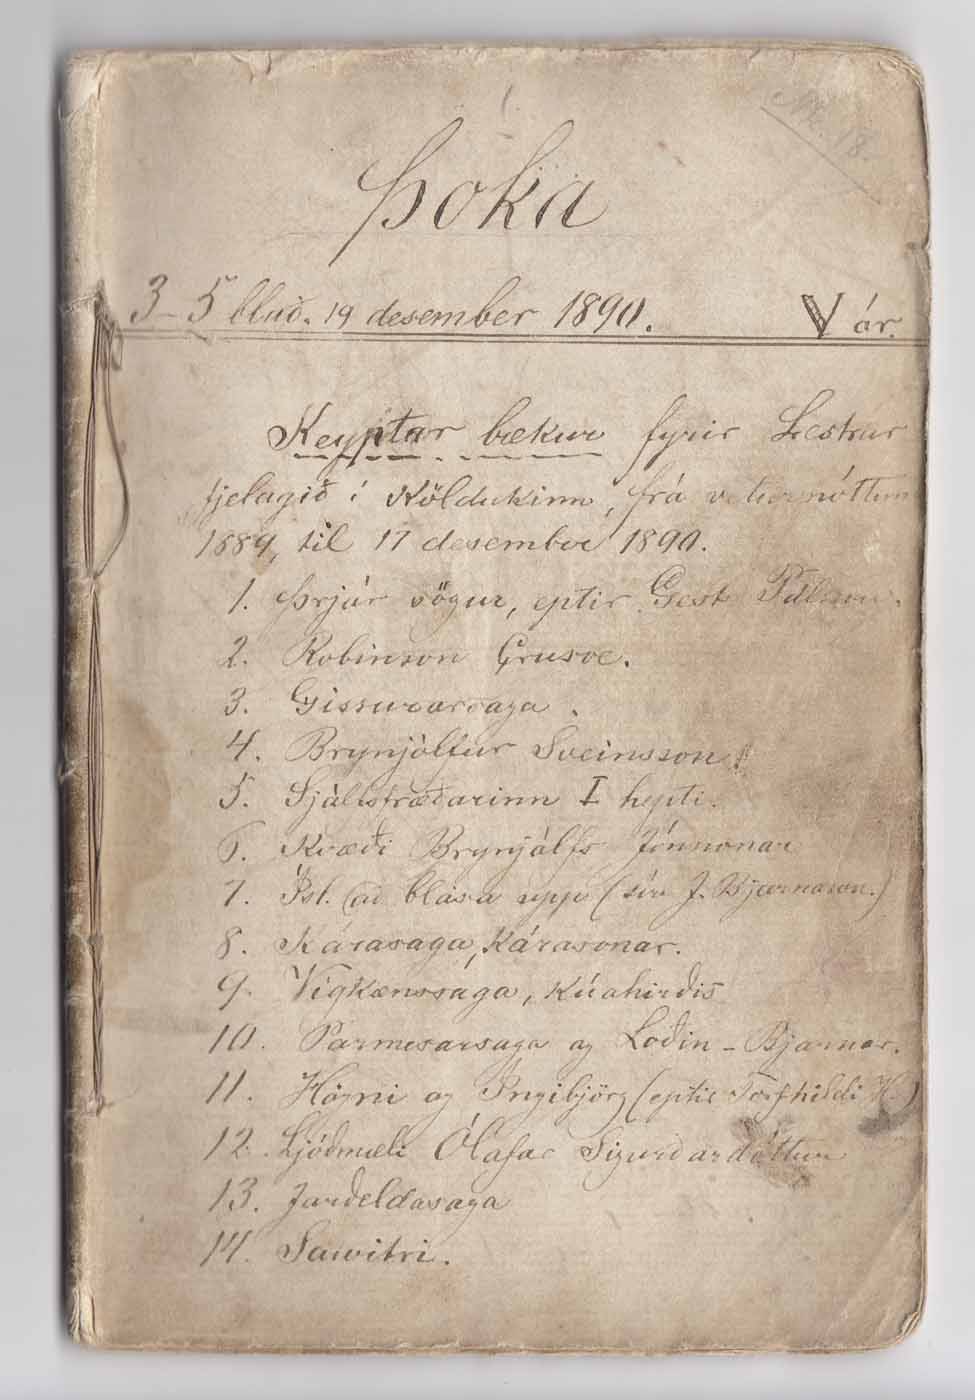 Nr. 18.
Þoka
3-5 blað. 19 desember 1890. V ár.
Keyptar bækur fyrir Lestrar
fjelagið í Köldukinn, frá veturnóttum
1889, til 17 desember 1890.
1. Þrjár sögur, eptir Gest Pálsson.
2. Robinson Crusoe.
3. Gissurarsaga.
4. Brynjólfur Sveinsson.
5. Sjálfsfræðarinn I hepti.
6. Kvæði Brynjólfs Jónsonar
7. Ísl. að blása upp (sír J. Bjarnason.)
8. Kárasaga, Kárasonar.
9. Vígkænssaga, kúahirðis
10. Parmesarsaga og Loðin-Bjarnar.
11. Högni og Ingibjörg (eptir Torfhildi H.)
12. Ljóðmæli Ólafar Sigurðardóttur
13. Jarðeldasaga
14. Sawitri.